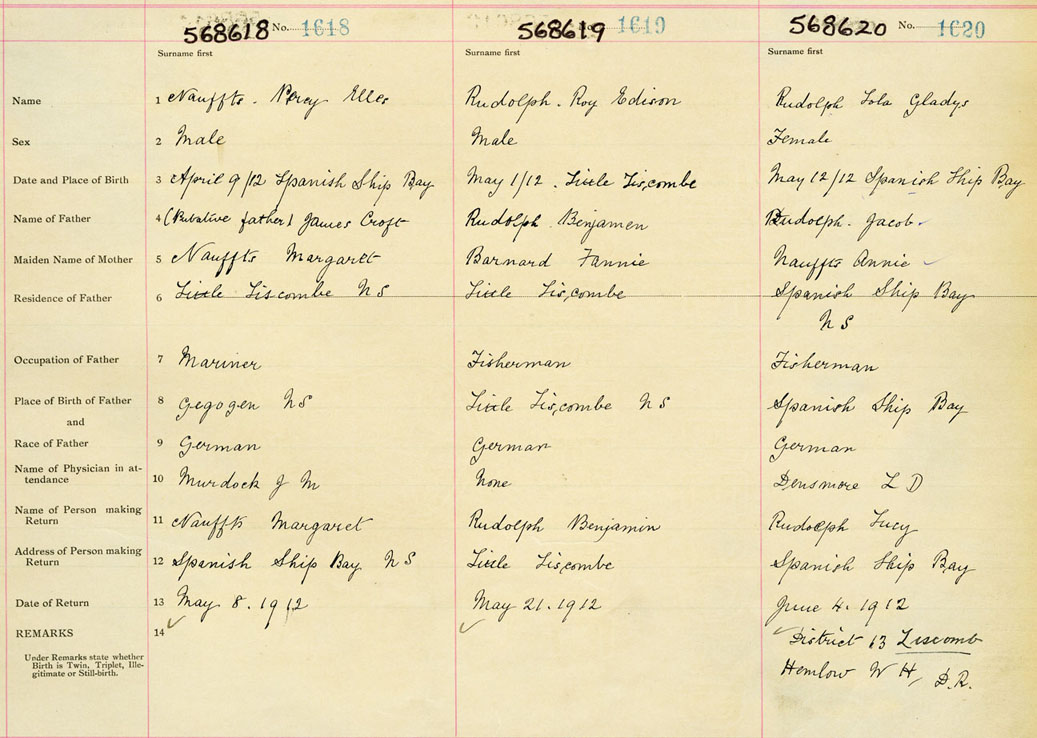 568618 No. 1618 568619 No. 1619 568620 No. 1620
Surname first Surname first Surname first
Name 1 Nauffts. Percy Elles Rudolph. Roy Edison Rudolph Lola Gladys
Sex 2 Male Male Female
Date and Place of Birth 3 April 9/12 Spanish Ship Bay May 1/12. Little Liscombe May 12/12 Spanish Ship Bay
Name of Father 4 (Putative father) James Croft Rudolph. Benjamen Rudolph. Jacob.
Maiden Name of Mother 5 Nauffts Margaret Barnard Fannie Nauffts Annie
Residence of Father 6 Little Liscombe NS Little Liscombe Spanish Ship Bay
NS
Occupation of Father 7 Mariner Fisherman Fisherman
Place of Birth of Father 8 Gegogen NS Little Liscombe NS Spanish Ship Bay
and
Race of Father 9 German German German
Name of Physician in at-
tendance 10 Murdock J M None Densmore L D
Name of Person making
Return 11 Nauffts Margaret Rudolph Benjamin Rudolph Lucy
Address of Person making
Return 12 Spanish Ship Bay NS Little Liscombe Spanish Ship Bay
Date of Return 13 May 8. 1912 May 21. 1912 June 4. 1912
REMARKS 14 District 13 Liscomb
Under Remarks state whether
Birth is Twin, Triplet, Ille-
gitimate or Still-birth.
Hemlow W H, D.R.